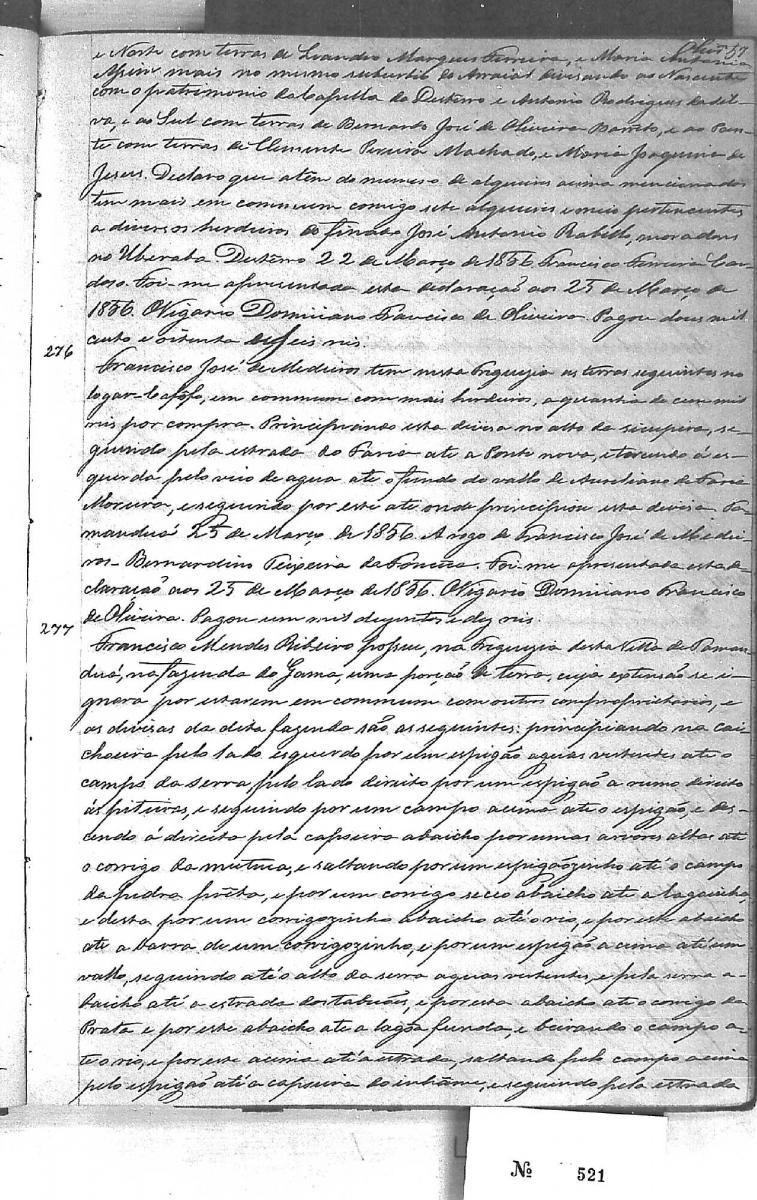 57
e Norte com terras de Leandro Marques Ferreira, e Maria Antonia
Assim mais no mesmo suburbio do Arraial divisando ao Nascente
com o patrimonio da Capella do Desterro e Antonio Rodrigues da Sil-
va, e ao Sul com terras de Bernardo José de Oliveira Barreto, e ao Poen-
te com terras de Clemente Pereira Machado, e Maria Joaquina de
Jesus. Declaro que além do numero de alqueires acima mencionados
tem mais em commum comigo sete alqueires e meio pertencentes
a diversos herdeiros do finado José Antonio Rabello, moradores
no Uberaba. Desterro 22 de Março de 1856. Francisco Ferreira Car-
doso. Foi-me apresentada esta declaração aos 25 de Março de
1856. O Vigario Domiciano Francisco de Oliveira. Pagou dous mil
cento e oitenta e seis reis.
276
Francisco José de Medeiros tem nesta Freguezia as terras seguintes no
logar-Cafofo, em commum com mais herdeiros, a quantia de cem mil
reis por compra. Principiando esta divisa no alto da sicupira, se-
guindo pela estrada do Faria até a Ponte nova, e torcendo á es-
querda pelo veio de agua até o fundo do vallo de Aureliano de Faria
Moreira, e seguindo por este até onde principiou esta divisa Ta-
manduá 25 de Março de 1856. A rogo de Francisco José de Medei-
ros - Bernardino Teixeira da Fonseca. Foi-me apresentada esta de-
claração aos 25 de Março de 1856. O Vigario Domiciano Francisco
de Oliveira. Pagou um mil duzentos e dez reis.
277
Francisco Mendes Ribeiro possue, na Freguezia desta Villa de Taman-
duá, na fazenda do Gama, uma porção de terra, cuja extensão se i-
gnora por estarem em commum com outros comproprietarios, e
as divisas da dita fazenda são as seguintes: principiando na cai-
choeira pelo lado esquerdo por um espigão aguas vertentes até o
campo da serra pelo lado direito por um espigão a rumo direito
ás piteiras, e seguindo por um campo acima até o espigão, e des-
cendo á direita pela capoeira abaicho por umas arvores altas até
o corrigo da mutuca, e saltando por um espigãozinho até o campo
da pedra preta, e por um corrigo secco abaicho até a lagoinha,
e desta por um corrigozinho abaicho até o rio, e por este abaicho
até a barra de um corrigozinho, e por um espigão acima até um
vallo, seguindo até o alto da serra aguas vertentes, e pela serra a-
baicho até a estrada dos taboões, e por esta abaicho até o corrigo da
Prata e por este abaicho até a lagôa funda, e beirando o campo a-
té o rio, e por este acima até a estrada, saltando pelo campo acima
pelo espigão até a capoeira do inhâme, e seguindo pela estrada
Nº 521